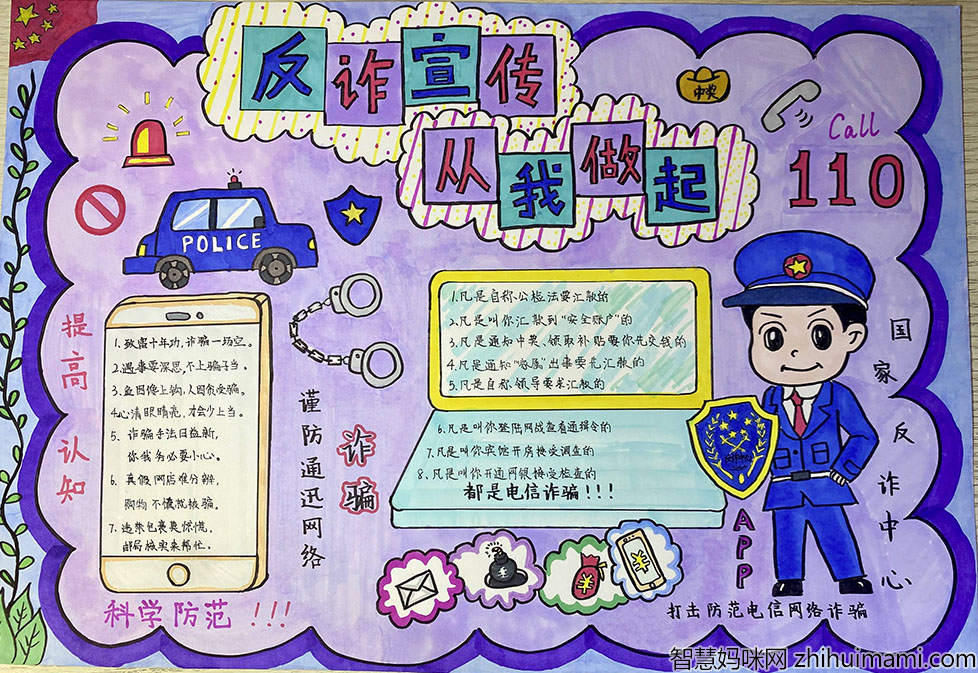 反诈宣传
从我做起
中奖
Call
110
POLICE
提高认知
1、致富十年功,诈骗一场空。
2、遇事要深思,不上骗子当。
3、鱼因馋上钩,人因贪受骗。
4、心清眼睛亮,才会少上当。
5、诈骗手法日益新,
你我务必要小心。
6、真假网店难分辨,
购物不慎就被骗。
7、违禁包裹莫惊慌,
邮局核实来帮忙。
科学防范!!!
谨防通迅网络
诈骗
1、凡是自称公检法要汇款的
2、凡是叫你汇款到“安全账户”的
3、凡是通知中奖、领取补贴要你先交钱的
4、凡是通知“家属”出事要先汇款的
5、凡是自称领导要求汇款的
6、凡是叫你登陆网战查看通辑令的
7、凡是叫你宾馆开房接受调查的
8、凡是叫你开通网银接受检查的
都是电信诈骗!!!
国家反诈中心
APP
打击防范电信网络诈骗
智慧妈咪网 zhihuimami.com